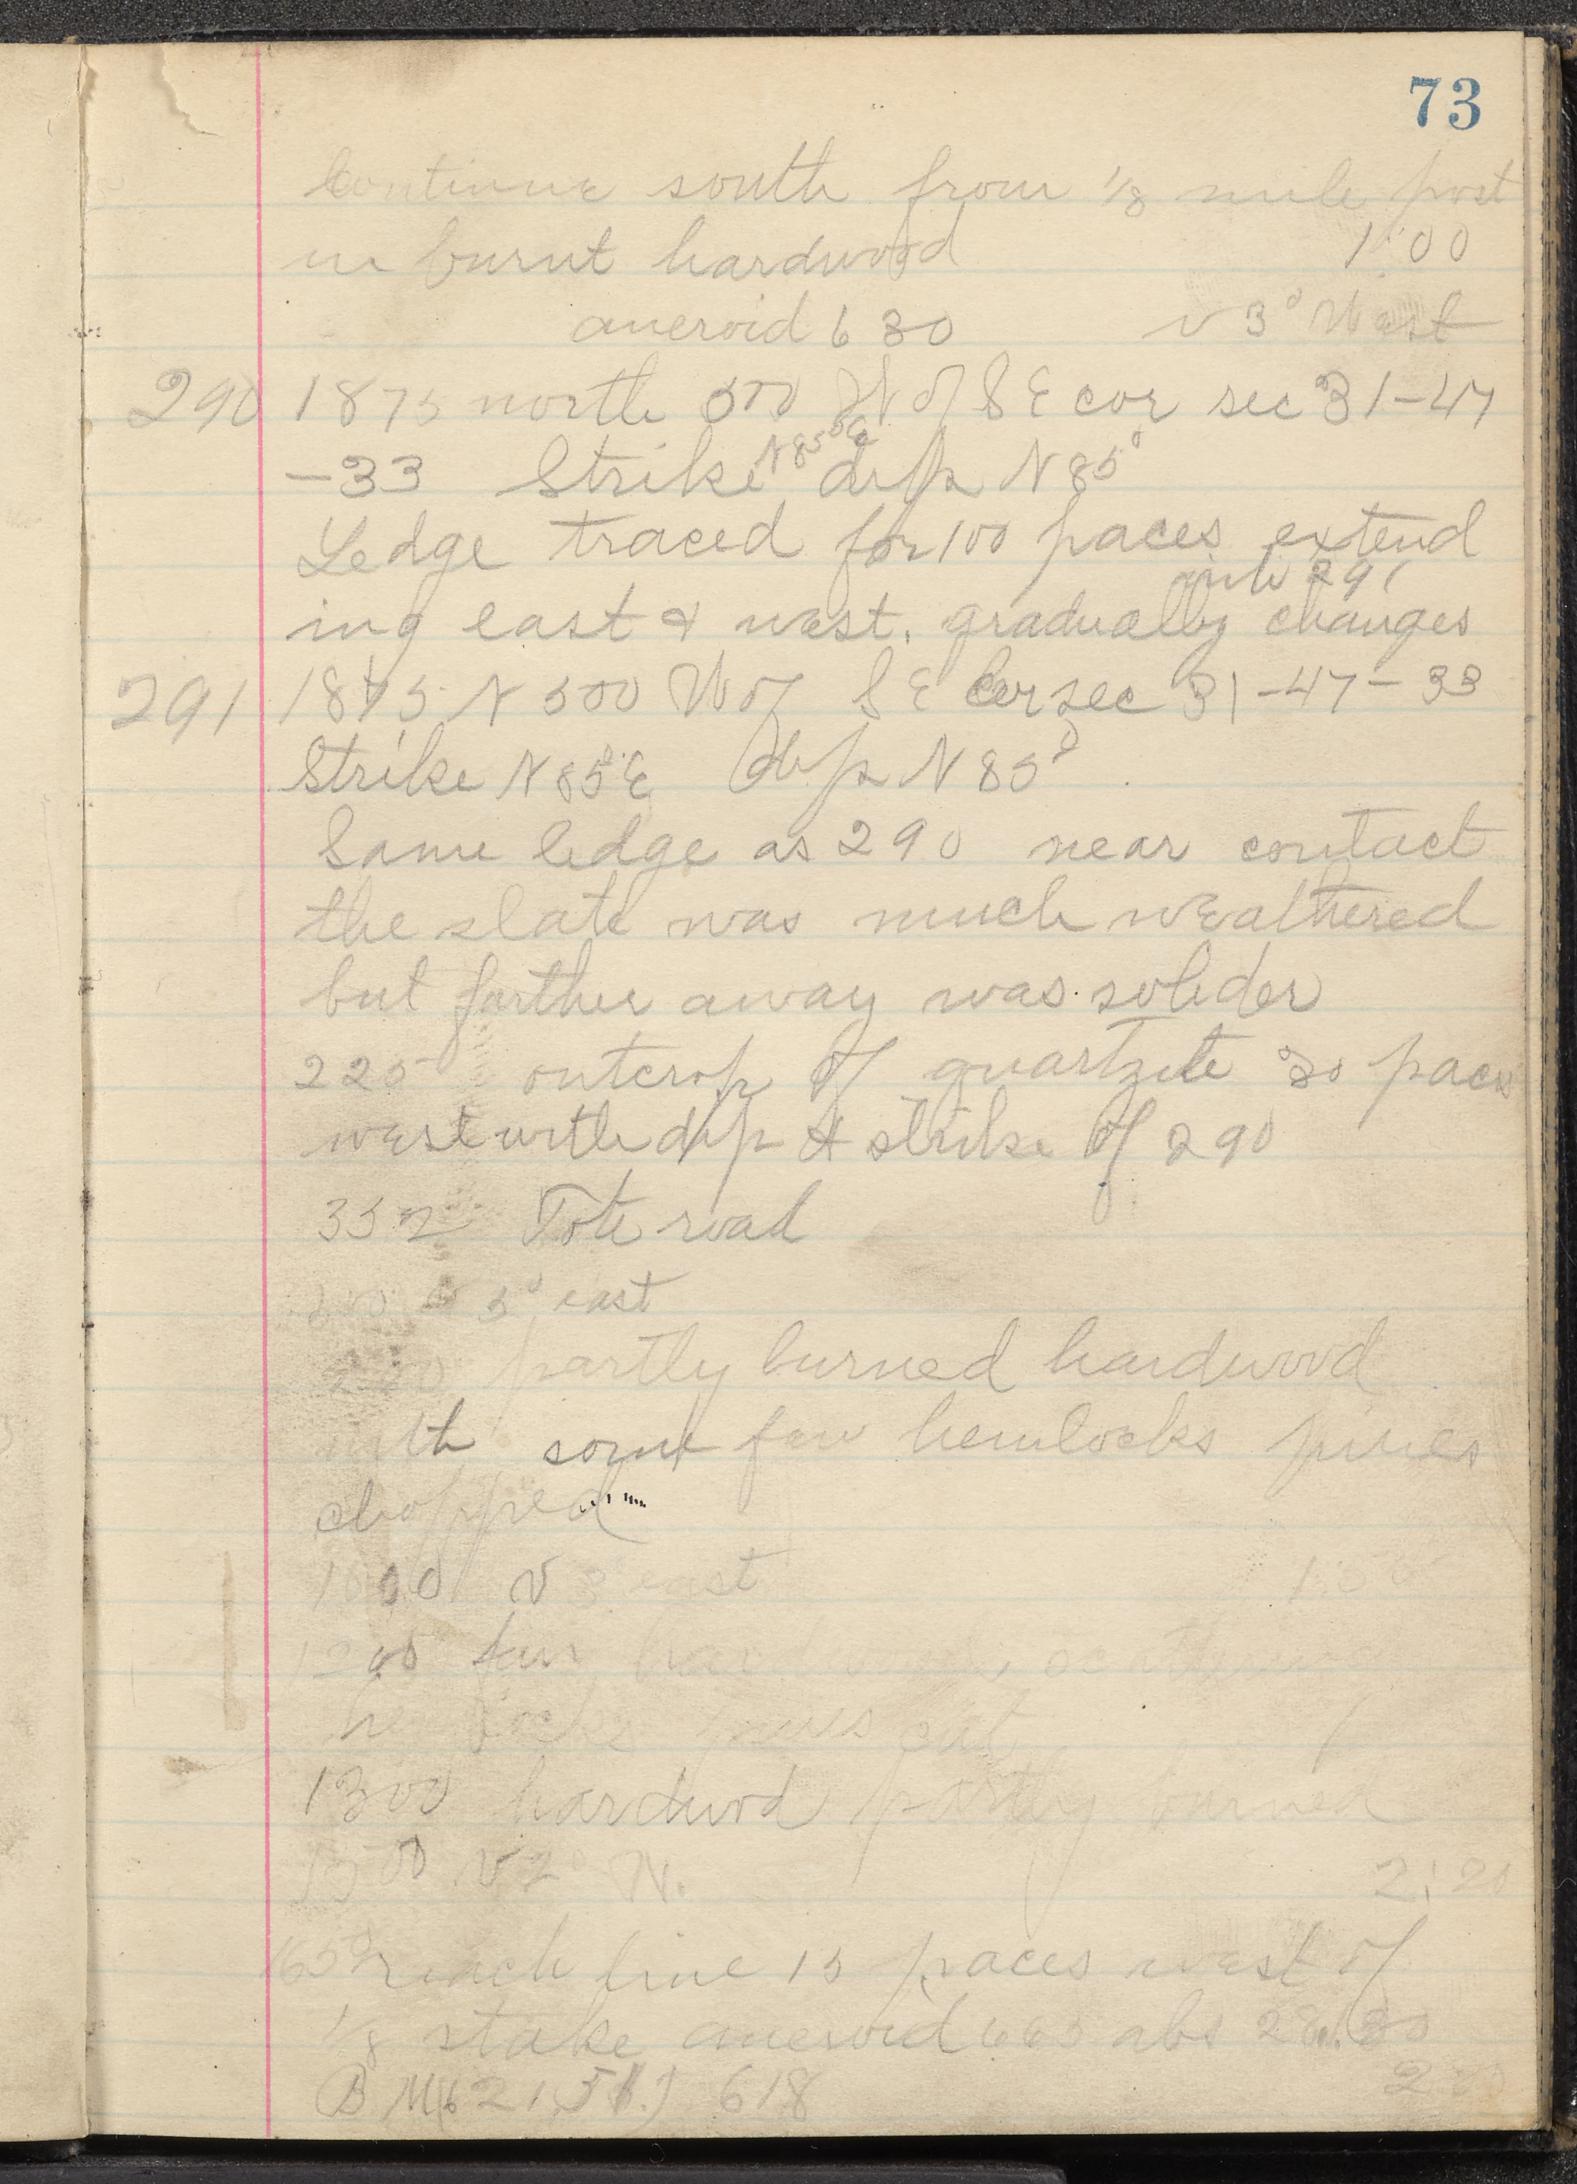 73
Continue south from 1/8 mile post
in burnt hardwood 1:00
aneroid 630 v 3° West
290 1875 north 500 W of S E cor sec 31-47
-33 Strike N85°E dip N 85°
Ledge traced for 100 paces extend
ing east & west. gradually changes into 291
291 1875 N 500 W of S E Cor sec 31-47-33
Strike N 85°E dip N 85°
Same ledge as 290 near contact
the slate was much weathered
but farther away was solider
225 outcrop of quartzite 30 paces
west with dip & strike of 290
352 Tote road
3° east
partly burned hardwood
with some few hemlocks pines
chopped
1000 v 3 east
1200 fair hardwood scattering
hemlocks pines cut
1300 hardwod partly burned
1500 v 2° W. 2:20
1650 reach line 15 paces west of
1/8 stake aneroid 665 abs
B M 618